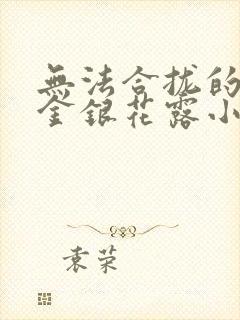 無法合拢的
金銀花露小
袁荣